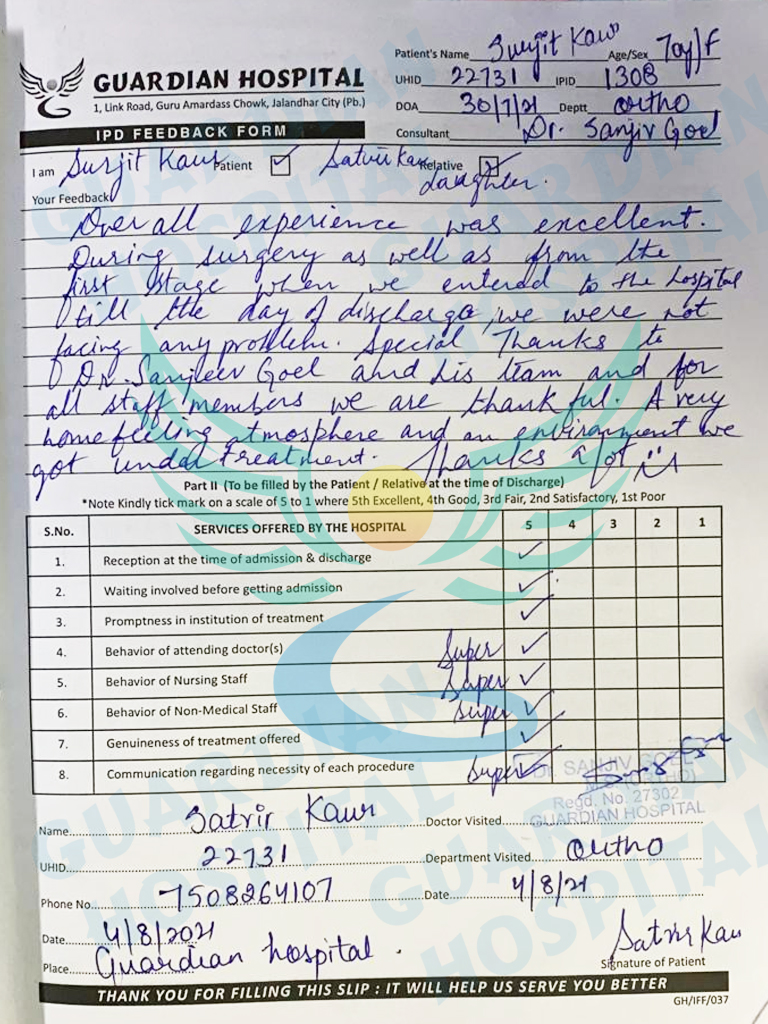 GUARDIAN HOSPITAL
1, Link Road, Guru Amardass Chowk, Jalandhar City (Pb.)
IPD FEEDBACK FORM
Patient's Name Surjit Kaur Age/Sex 70y/F
UHID 22731 IPID 1308
DOA 30/7/21 Deptt ortho
Consultant Dr. Sanjiv Goel
I am Surjit Kaur Patient ✓ Satvir Kaur Relative ✓
daughter.
Your Feedback
Over all experience was excellent.
During surgery as well as from the
first stage when we entered to the hospital
till the day of discharge, we were not
facing any problem. Special Thanks to
Dr. Sanjeev Goel and his team and for
all staff members we are thankful. A very
home feeling atmosphere and an environment we
got under treatment. Thanks a lot
Part II (To be filled by the Patient / Relative at the time of Discharge)
*Note Kindly tick mark on a scale of 5 to 1 where 5th Excellent, 4th Good, 3rd Fair, 2nd Satisfactory, 1st Poor
S.No. SERVICES OFFERED BY THE HOSPITAL 5 4 3 2 1
1. Reception at the time of admission & discharge ✓
2. Waiting involved before getting admission ✓
3. Promptness in institution of treatment ✓
4. Behavior of attending doctor(s) Super ✓
5. Behavior of Nursing Staff Super ✓
6. Behavior of Non-Medical Staff Super ✓
7. Genuineness of treatment offered ✓
8. Communication regarding necessity of each procedure Super ✓
Dr. SANJIV GOEL
Regd. No. 27302
GUARDIAN HOSPITAL
Name Satvir Kaur Doctor Visited
UHID 22731 Department Visited ortho
Phone No. 7508264107 Date 4/8/21
Date 4/8/2021
Place Guardian hospital. Satvir Kau
Signature of Patient
THANK YOU FOR FILLING THIS SLIP : IT WILL HELP US SERVE YOU BETTER
GH/IFF/037
GUARDIAN HOSPITAL
GUARDIAN HOSPITAL
GUARDIAN HOSPITAL
GUARDIAN HOSPITAL